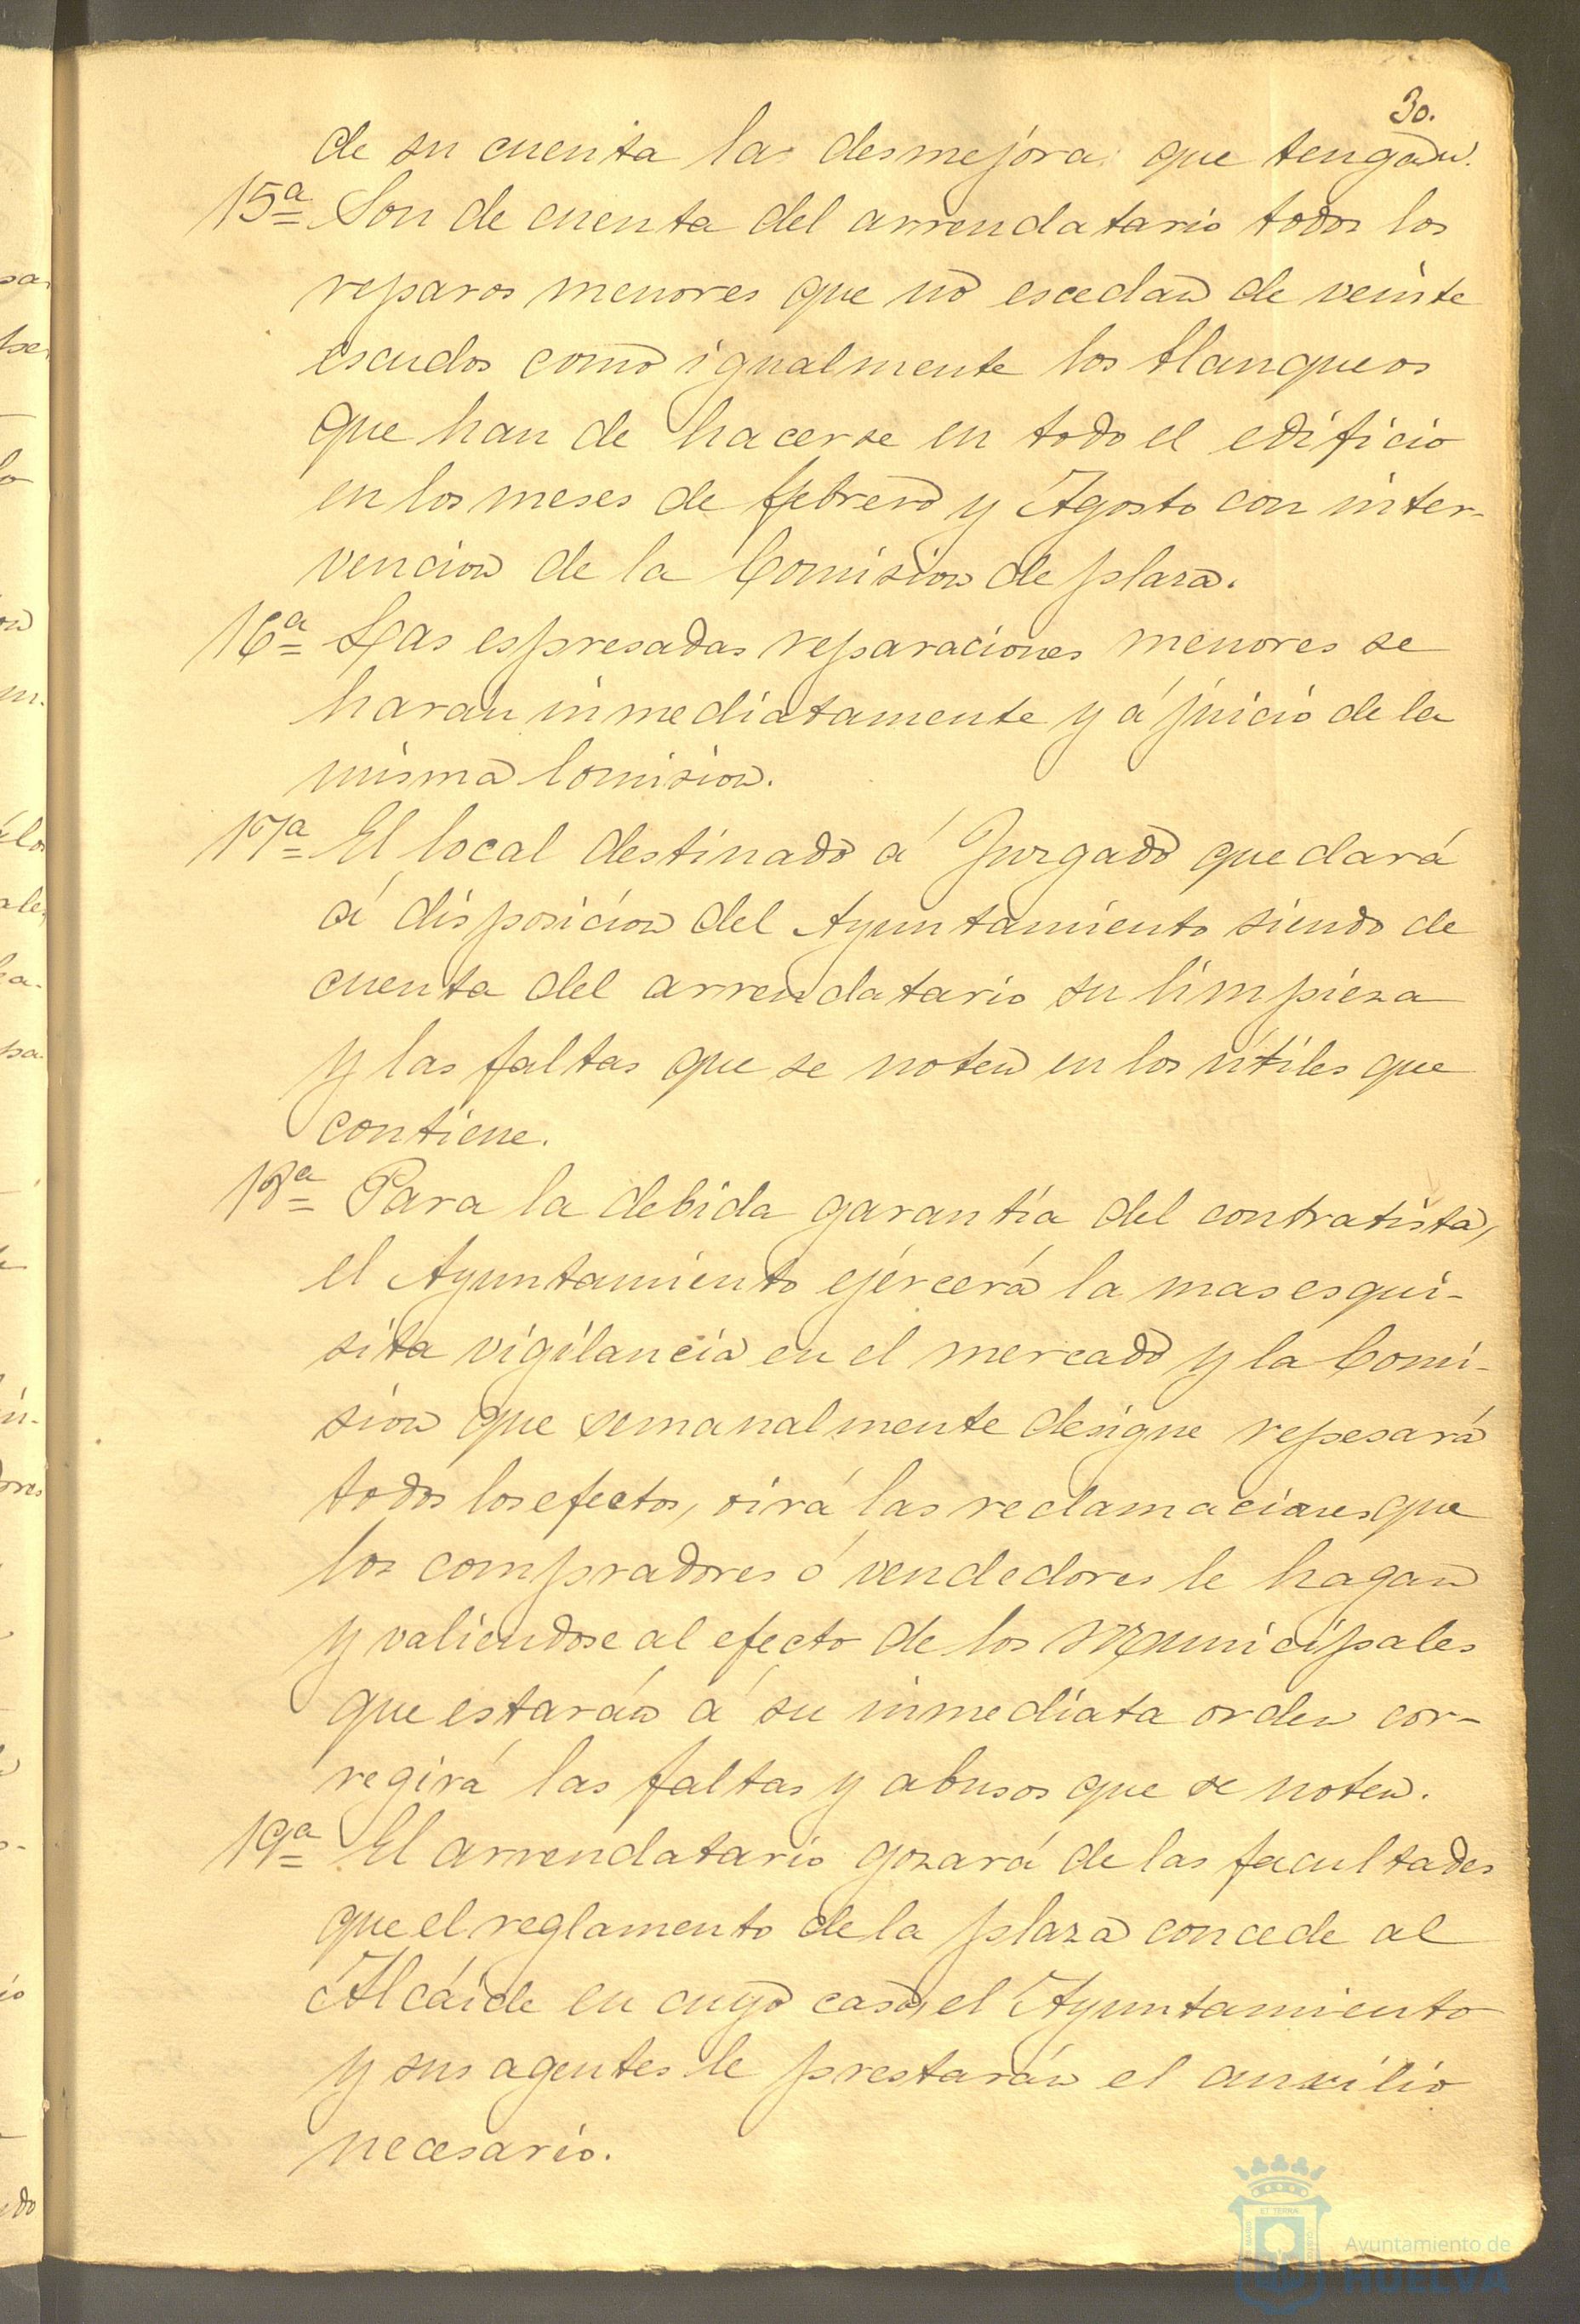 30.
de su cuenta la desmejora que tengan.
15ª Son de cuenta del arrendatario todos los
reparos menores que no escedan de veinte
escudos como igualmente los blanqueos
que han de hacerse en todo el edificio
en los meses de febrero y Agosto con inter-
vencion de la Comision de plaza.
16ª Las espresadas reparaciones menores se
harán inmediatamente y á juicio de la
misma Comision.
17ª El local destinado á Juzgado quedará
á disposicion del Ayuntamiento siendo de
cuenta del arrendatario su limpieza
y las faltas que se noten en los útiles que
contiene.
18ª Para la debida garantía del contratista,
el Ayuntamiento ejercerá la mas esqui-
sita vigilancia en el mercado y la Comi-
sion que semanalmente designe repesará
todos los efectos, oirá las reclamaciones que
los compradores ó vendedores le hagan
y valiendose al efecto de los Municipales
que estarán á su inmediata orden cor-
regirá las faltas y abusos que se noten.
19ª El arrendatario gozará de las facultades
que el reglamento de la plaza concede al
Alcáide en cuyo caso, el Ayuntamiento
y sus agentes le prestarán el auxilio
necesario.
Ayuntamiento de
HUELVA